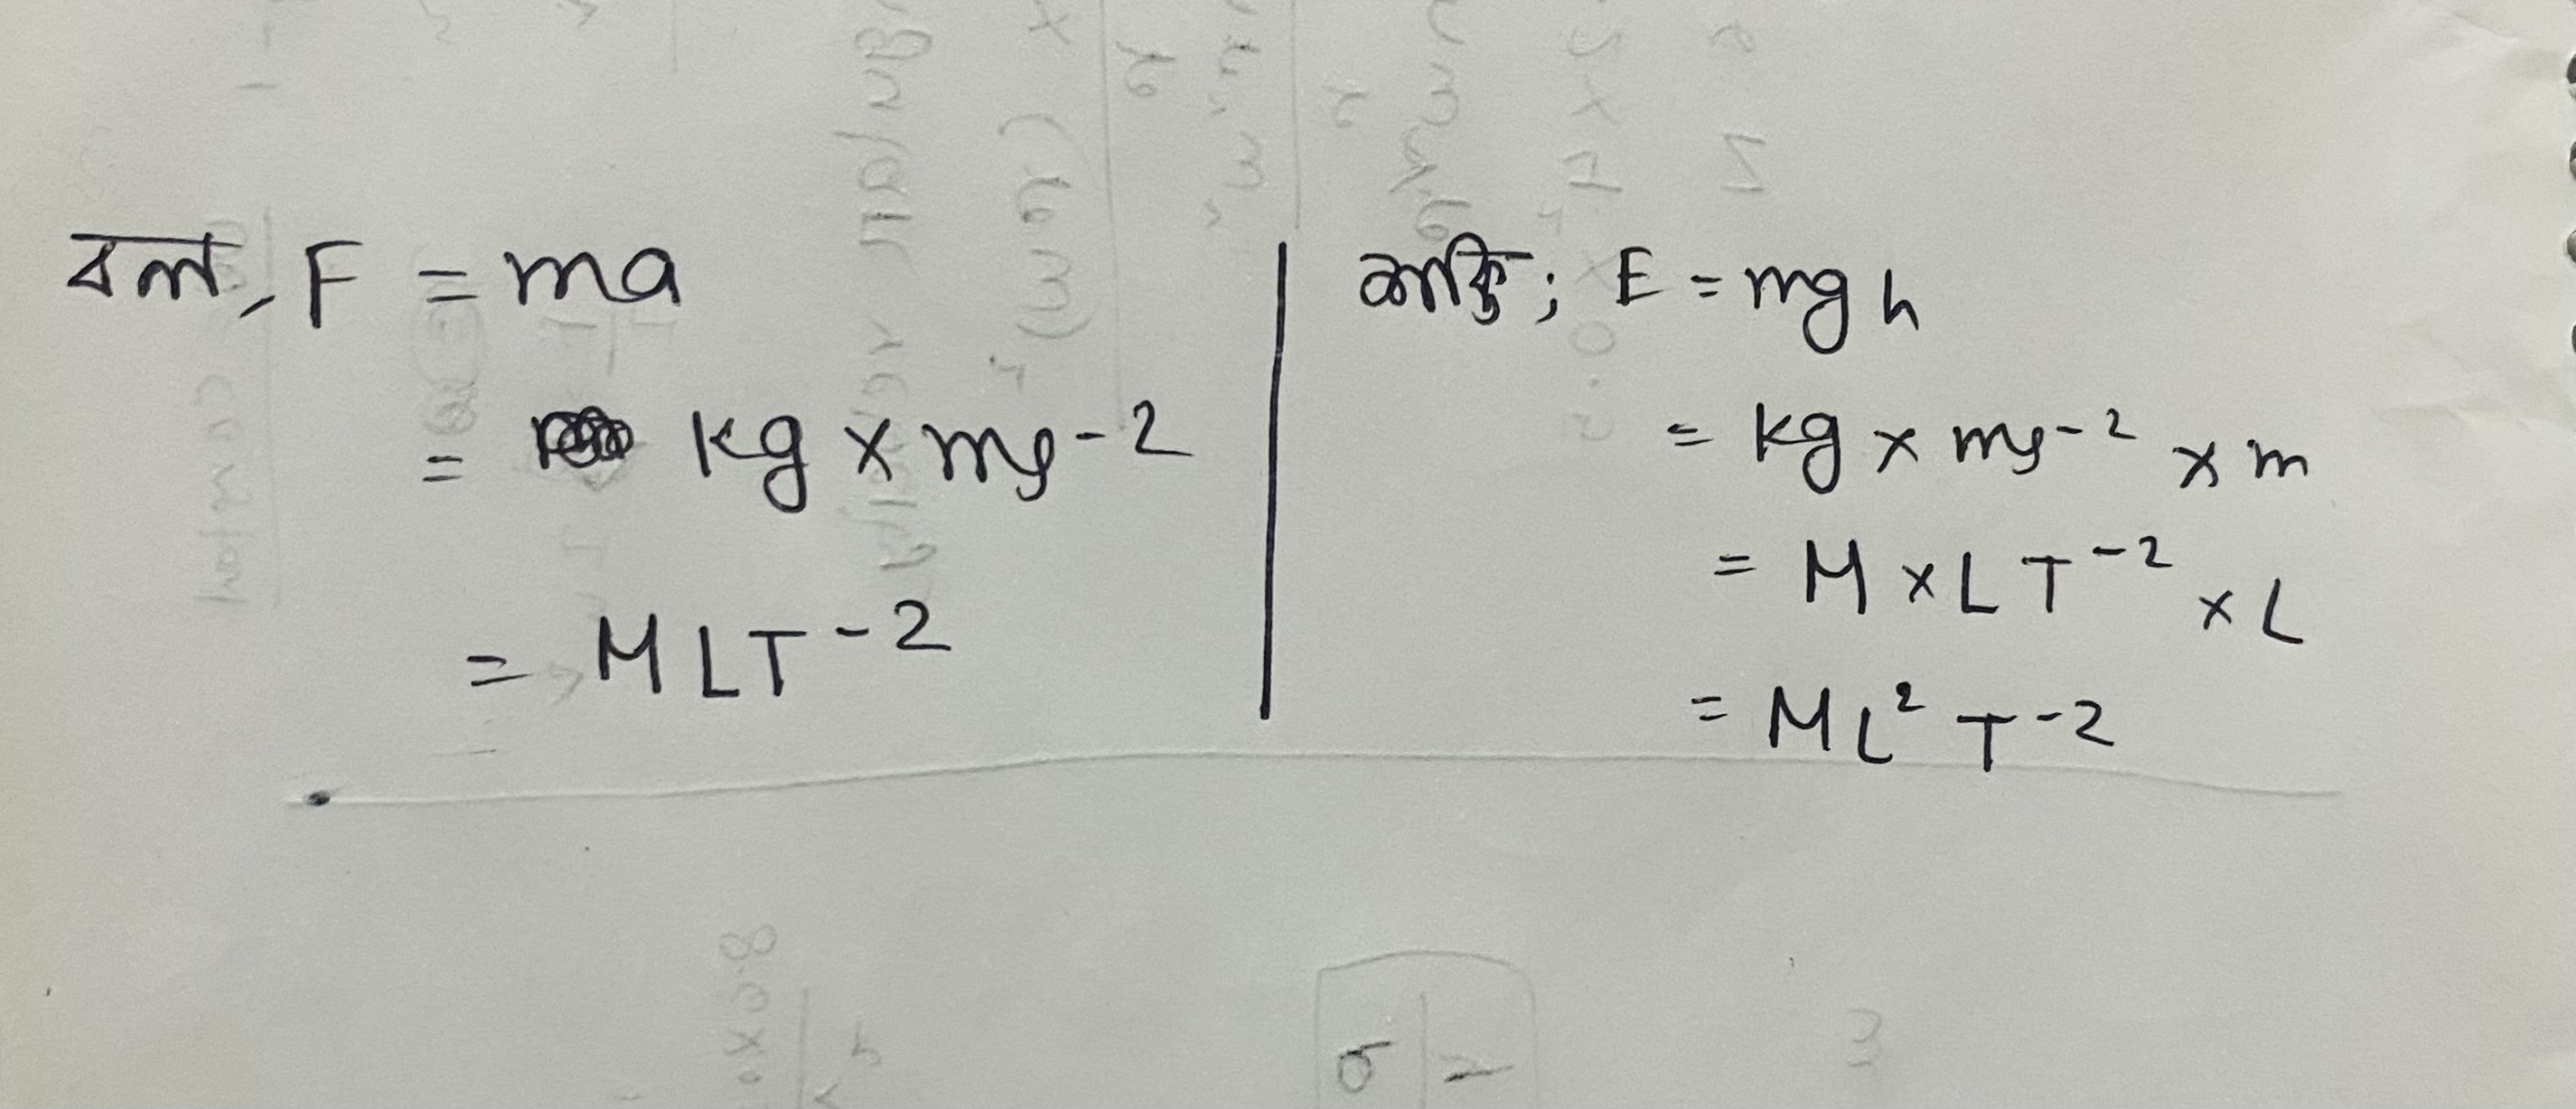 বল, F = ma
= kg x ms-2
= MLT-2
শক্তি; E = mgh
= kg x ms-2 x m
= M x LT-2 x L
= ML2 T-2